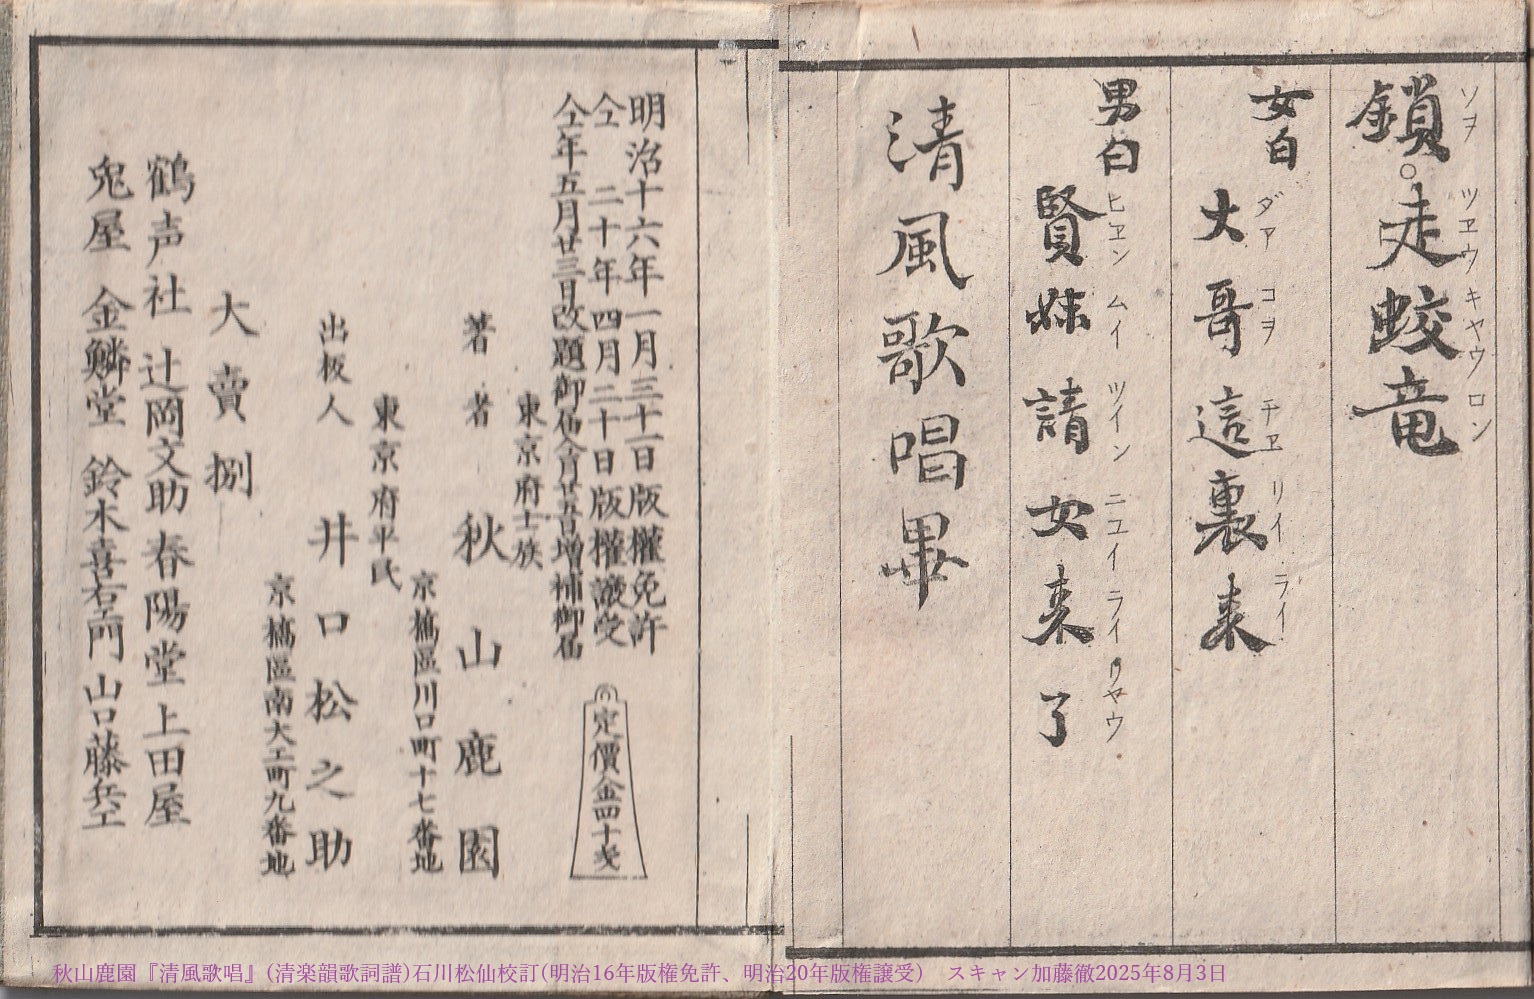 鎖。走蛟竜
ソヲ ツヱウ キヤウ ロン
女白 大哥這裏来
ダア コヲ チヱ リイ ライ
男白 賢妹請女来了
ヒヱン ムイ ツイン ニユイ ライ リヤウ
清風歌唱畢
明治十六年一月三十一日版權免許
仝 二十年四月二十日版權讓受
仝年五月廿三日改題御届仝月廿五日増補御届
定價金四十銭
東京府士族
著者 秋山鹿園
京橋區川口町十七番地
東京府平民
出板人 井口松之助
京橋區南大工町九番地
大賣捌
鶴声社 辻岡文助 春陽堂 上田屋
兎屋 金鱗堂 鈴木喜右エ門 山口藤兵エ
秋山鹿園『清風歌唱』(清楽韻歌詞譜)石川松仙校訂(明治16年版権免許、明治20年版権譲受) スキャン加藤徹2025年8月3日